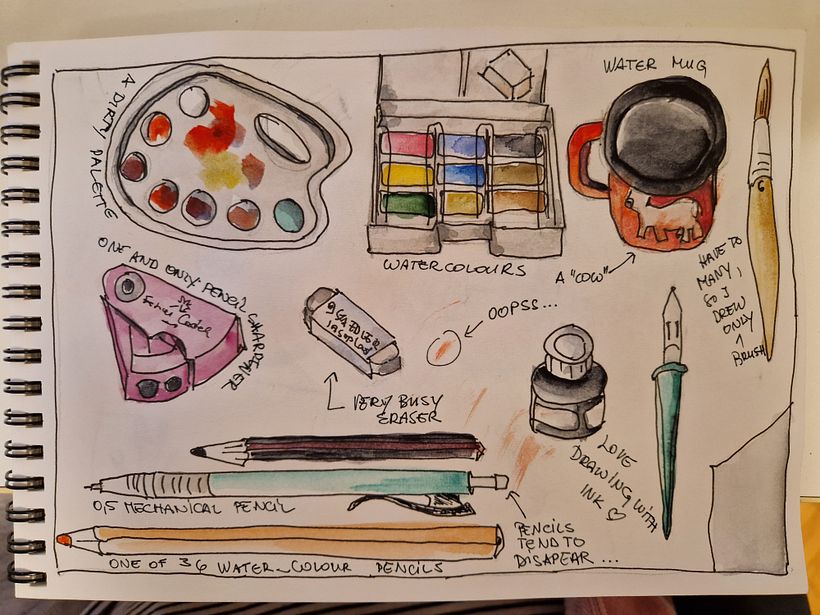 A DIRTY PALETTE
WATERCOLOURS
WATER MUG
A "COW"
HAVE TO
MANY,
SO I
DREW
ONLY
1
BRUSH
ONE AND ONLY PENCIL SHARPENER
Faber Castell
OOPSS...
VERY BUSY
ERASER
LOVE
DRAWING WITH
INK ♡
0,5 MECHANICAL PENCIL
PENCILS
TEND TO
DISAPEAR...
ONE OF 36 WATER-COLOUR PENCILS